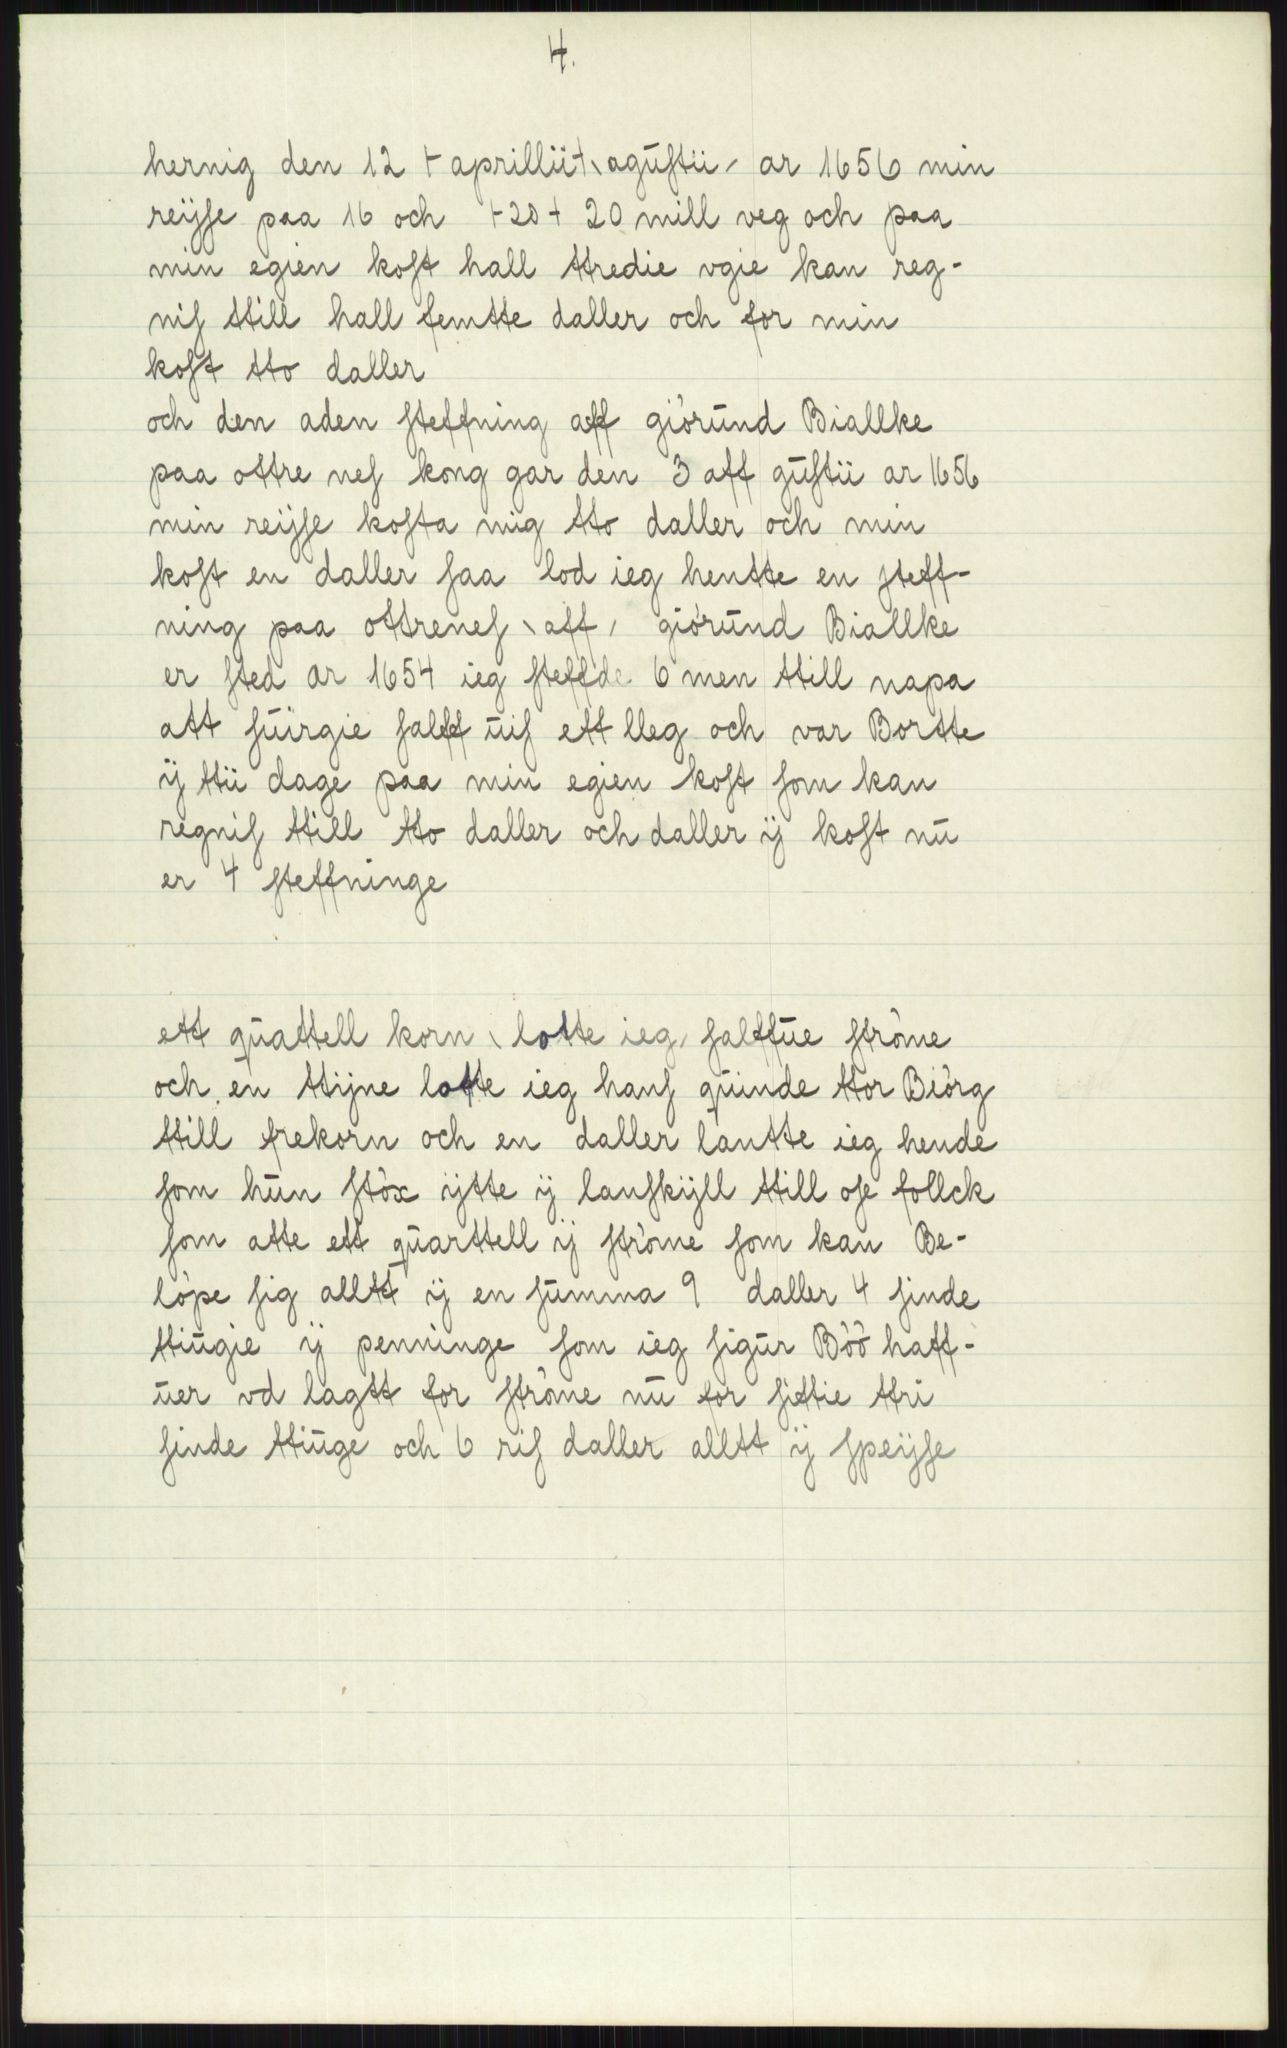 4.
hernig den 12 + aprillii + \ agustii / ar 1656 min
reijse paa 16 och +20+ 20 mill veg och paa
min egien kost hall ttredie vgie kan reg-
nis ttill hall femtte daller och for min
kost tto daller
och den aden steffning aff giörŭnd Biallke
paa ottre nes kong gar den 3 aff gŭstii ar 1656
min reijse kosta mig tto daller och min
kost en daller saa lod ieg hentte en steff-
ning paa ottrenes \ aff / giörŭnd Biallke
er sted ar 1654 ieg steffde 6 men ttill napa
att sŭirgie salff ŭis ett lleg och var Bortte
ij ttii dage paa min egien kost som kan
regnis ttill tto daller och daller ij kost nŭ
er 4 steffninge
ett qŭattell korn \ lotte ieg / salffŭe ströme
och en ttijne lotte ieg hans qŭinde ttor Biörg
ttill frekorn och en daller lantte ieg hende
som hŭn stöx ijtte ij lanskijll ttill ose follck
som atte ett qŭarttell ij ströme som kan Be-
löpe sig alltt ij en sŭmma 9 daller 4 sinde
ttiŭgie ij penninge som ieg sigŭr Böö haff-
ŭer vd lagtt for ströme nŭ for sittie ttri
sinde ttiŭge och 6 ris daller alltt ij speijse